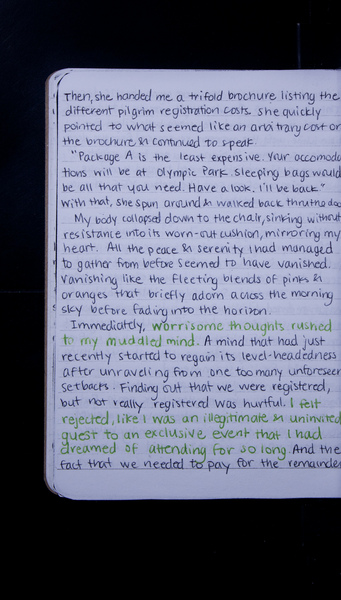 Then, she handed me a trifold brochure listing the
different pilgrim registration costs. she quickly
pointed to what seemed like an arbitrary cost on
the brochure & continued to speak.
"Package A is the least expensive. Your accomoda
tions will be at Olympic Park. Sleeping bags would
be all that you need. Have a look. I'll be back."
With that, she spun around & walked back thru the doo
My body collapsed down to the chair, sinking without
resistance into its worn-out cushion, mirroring my
heart. All the peace & serenity I had managed
to gather from before seemed to have vanished.
Vanishing like the fleeting blends of pinks &
oranges that briefly adorn across the morning
sky before fading into the horizon.
Immediately, worrisome thoughts rushed
to my muddled mind. A mind that had just
recently started to regain its level-headedness
after unraveling from one too many unforeseen
setbacks. Finding out that we were registered,
but not really registered was hurtful. I felt
rejected, like I was an illegitimate & uninvited
guest to an exclusive event that I had
dreamed of attending for so long. And the
fact that we needed to pay for the remainder